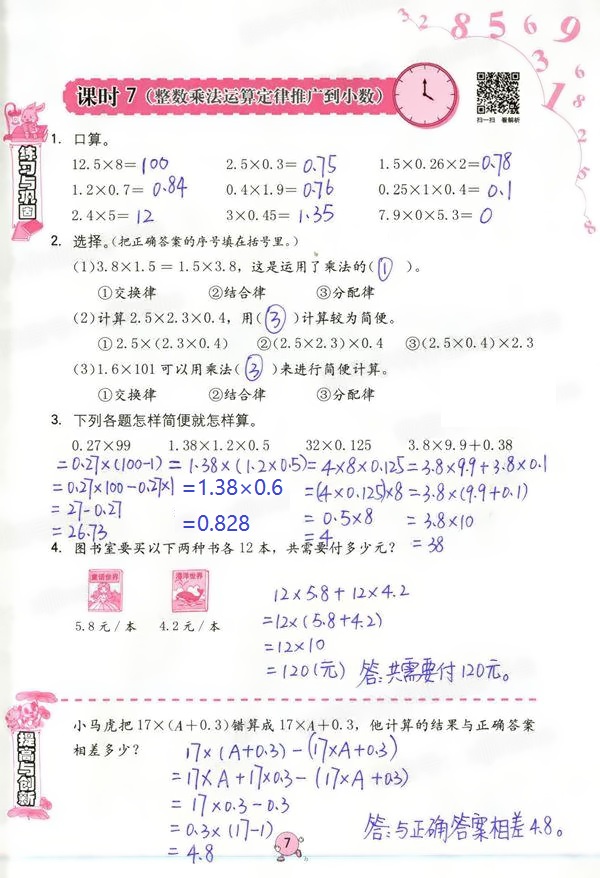 3 2 8 5 6 9 3 1 6 8 2 5 8
课时7(整数乘法运算定律推广到小数)
扫一扫 看解析
练习与巩固
1. 口算。
12.5×8=100 2.5×0.3=0.75 1.5×0.26×2=0.78
1.2×0.7=0.84 0.4×1.9=0.76 0.25×1×0.4=0.1
2.4×5=12 3×0.45=1.35 7.9×0×5.3=0
2. 选择。(把正确答案的序号填在括号里。)
(1)3.8×1.5=1.5×3.8,这是运用了乘法的(①)。
①交换律 ②结合律 ③分配律
(2)计算2.5×2.3×0.4,用(③)计算较为简便。
①2.5×(2.3×0.4) ②(2.5×2.3)×0.4 ③(2.5×0.4)×2.3
(3)1.6×101可以用乘法(③)来进行简便计算。
①交换律 ②结合律 ③分配律
3. 下列各题怎样简便就怎样算。
0.27×99 1.38×1.2×0.5 32×0.125 3.8×9.9+0.38
=0.27×(100-1) =1.38×(1.2×0.5) =4×8×0.125 =3.8×9.9+3.8×0.1
=0.27×100-0.27×1 =1.38×0.6 =(4×0.125)×8 =3.8×(9.9+0.1)
=27-0.27 =0.828 =0.5×8 =3.8×10
=26.73 =4 =38
4. 图书室要买以下两种书各12本,共需要付多少元?
童话世界 海洋世界
5.8元/本 4.2元/本
12×5.8+12×4.2
=12×(5.8+4.2)
=12×10
=120(元) 答:共需要付120元。
提高与创新
小马虎把17×(A+0.3)错算成17×A+0.3,他计算的结果与正确答案
相差多少?
17×(A+0.3)-(17×A+0.3)
=17×A+17×0.3-(17×A+0.3)
=17×0.3-0.3
=0.3×(17-1)
=4.8
答:与正确答案相差4.8。
7